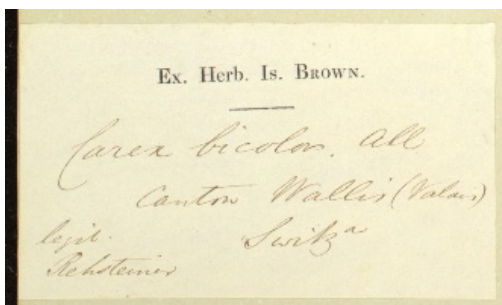 Ex. Herb. Is. Brown.
Carex bicolor. All
Canton Wallis (Valais)
legit. Switzᵃ
Rehsteiner